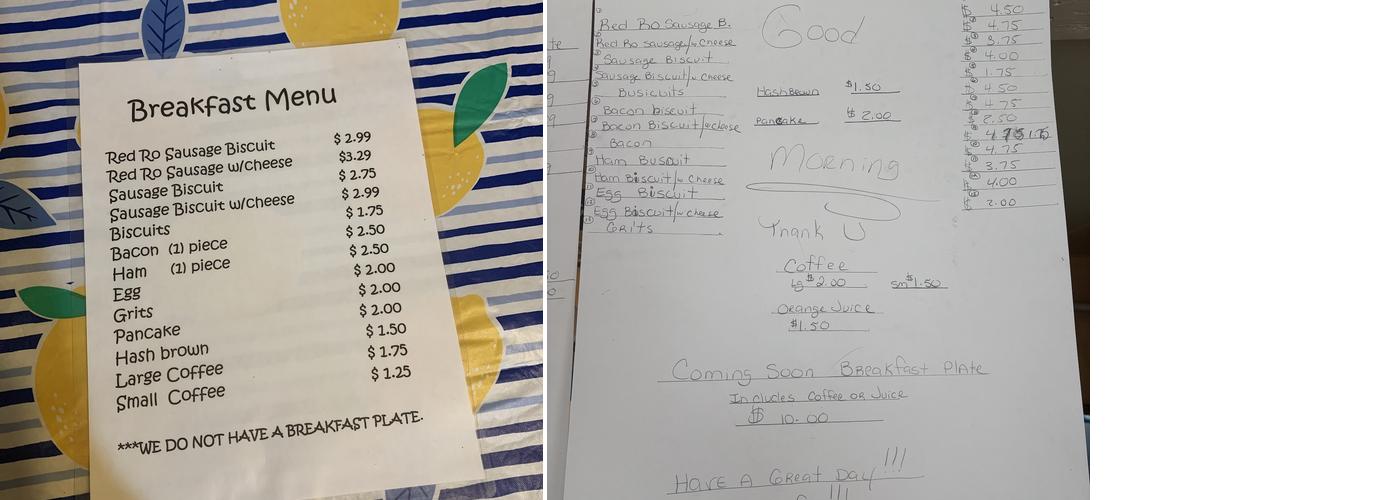 Breakfast Menu
Red Ro Sausage Biscuit $ 2.99
Red Ro Sausage w/Cheese $3.29
Sausage Biscuit $ 2.75
Sausage Biscuit w/cheese $ 2.99
Biscuits $ 1.75
Bacon (1) piece $ 2.50
Ham (1) piece $ 2.50
Egg $ 2.00
Grits $ 2.00
Pancake $ 2.00
Hash brown $ 1.50
Large Coffee $ 1.75
Small Coffee $ 1.25
***WE DO NOT HAVE A BREAKFAST PLATE.
Red Ro Sausage B.
Red Ro Sausage/w Cheese
Sausage Biscuit
Sausage Biscuit/w Cheese
Busicuits
Bacon biscuit
Bacon Biscuit/w cheese
Bacon
Ham Buscuit
Ham Biscuit/w Cheese
Egg Biscuit
Egg Biscuit/w cheese
Grits
Good
Hash Brown $1.50
Pancake $ 2.00
Morning
Thank U
Coffee
Lg $2.00 Sm $1.50
Orange Juice
$1.50
Coming Soon Breakfast Plate
Includes Coffee or Juice
$ 10.00
Have A Great Day !!!
$ 4.50
$ 4.75
$ 3.75
$ 4.00
$ 1.75
$ 4.50
$ 4.75
$ 2.50
$ 4.75
$ 3.75
$ 4.00
$ 2.00